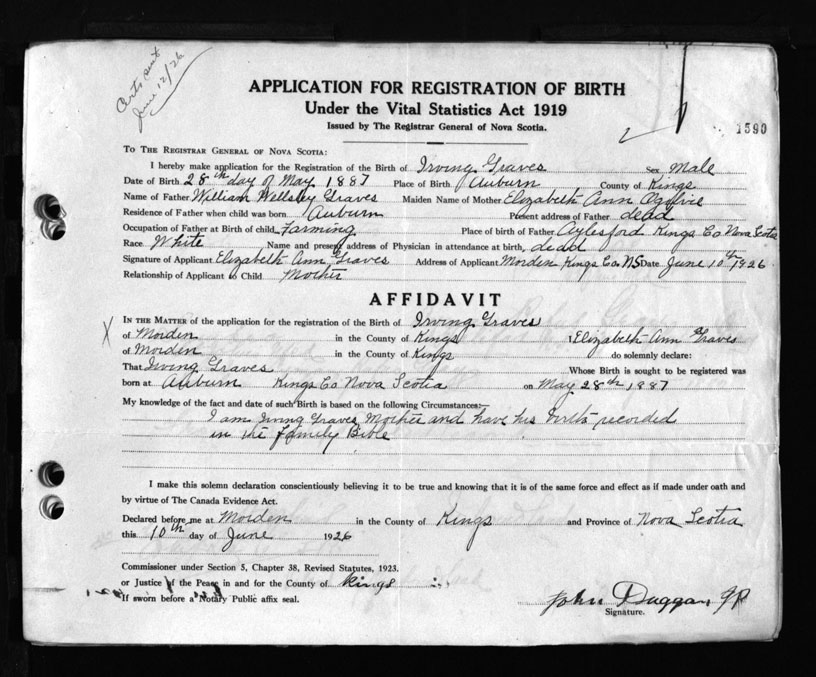 Certs sent
June 12/26
APPLICATION FOR REGISTRATION OF BIRTH
Under the Vital Statistics Act 1919
Issued by The Registrar General of Nova Scotia.
1590
TO THE REGISTRAR GENERAL OF NOVA SCOTIA:
I hereby make application for the Registration of the Birth of Irving Graves Sex Male
Date of Birth 28th day of May 1887 Place of Birth Auburn County of Kings
Name of Father William Wellsley Graves Maiden Name of Mother Elizabeth Ann Ogilvie
Residence of Father when child was born Auburn Present address of Father dead
Occupation of Father at Birth of child Farming Place of birth of Father Aylesford Kings Co Nova Scotia
Race White Name and present address of Physician in attendance at birth, dead
Signature of Applicant Elizabeth Ann Graves Address of Applicant Morden Kings Co NS Date June 10th 1926
Relationship of Applicant to Child Mother
AFFIDAVIT
X IN THE MATTER of the application for the registration of the Birth of Irving Graves
of Morden in the County of Kings I Elizabeth Ann Graves
of Morden in the County of Kings do solemnly declare:
That Irving Graves Whose Birth is sought to be registered was
born at Auburn Kings Co Nova Scotia on May 28th 1887
My knowledge of the fact and date of such Birth is based on the following Circumstances:—
I am Irving Graves Mother and have his birth recorded
in the family Bible
I make this solemn declaration conscientiously believing it to be true and knowing that it is of the same force and effect as if made under oath and
by virtue of The Canada Evidence Act.
Declared before me at Morden in the County of Kings and Province of Nova Scotia
this 10th day of June 1926
Commissioner under Section 5, Chapter 38, Revised Statutes, 1923.
or Justice of the Peace in and for the County of Kings
If sworn before a Notary Public affix seal.
John Duggan, JP
Signature.